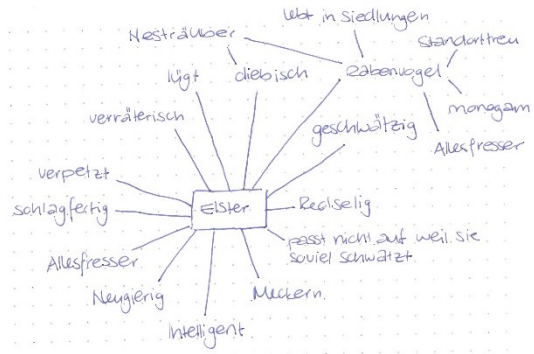 lebt in Siedlungen
Nesträuber
Standorttreu
lügt
diebisch
Rabenvogel
monogam
verräterisch
geschwätzig
Allesfresser
verpetzt
schlagfertig
Elster
Redselig
passt nicht auf weil sie
soviel schwätzt
Allesfresser
Neugierig
Meckern
Intelligent